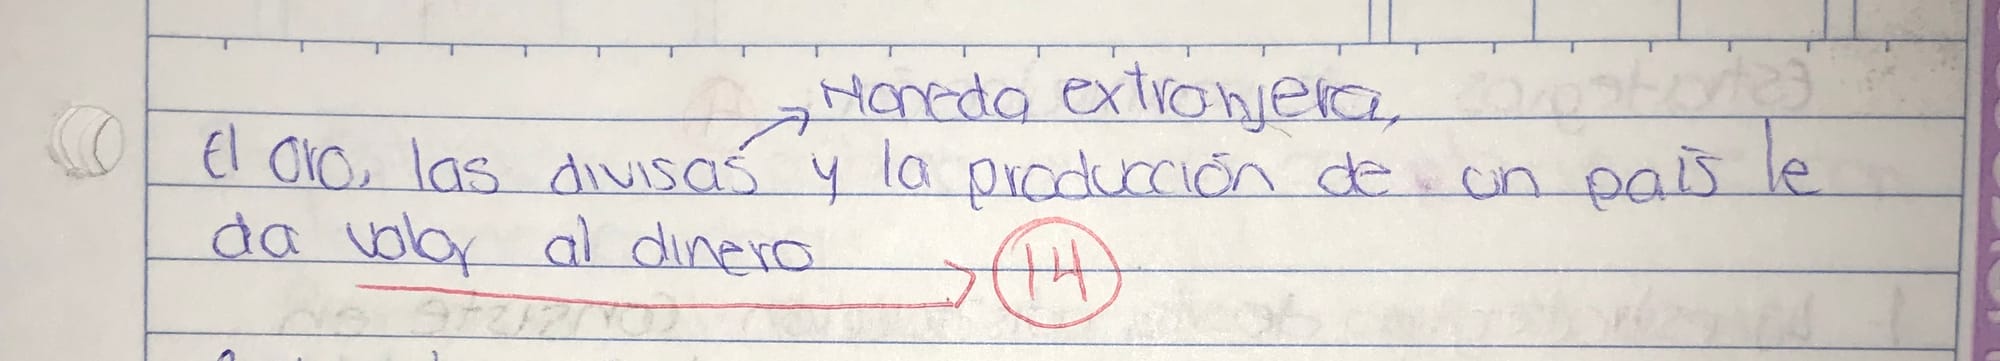 Moneda extranjera,
El oro, las divisas y la producción de un país le
da valor al dinero
14